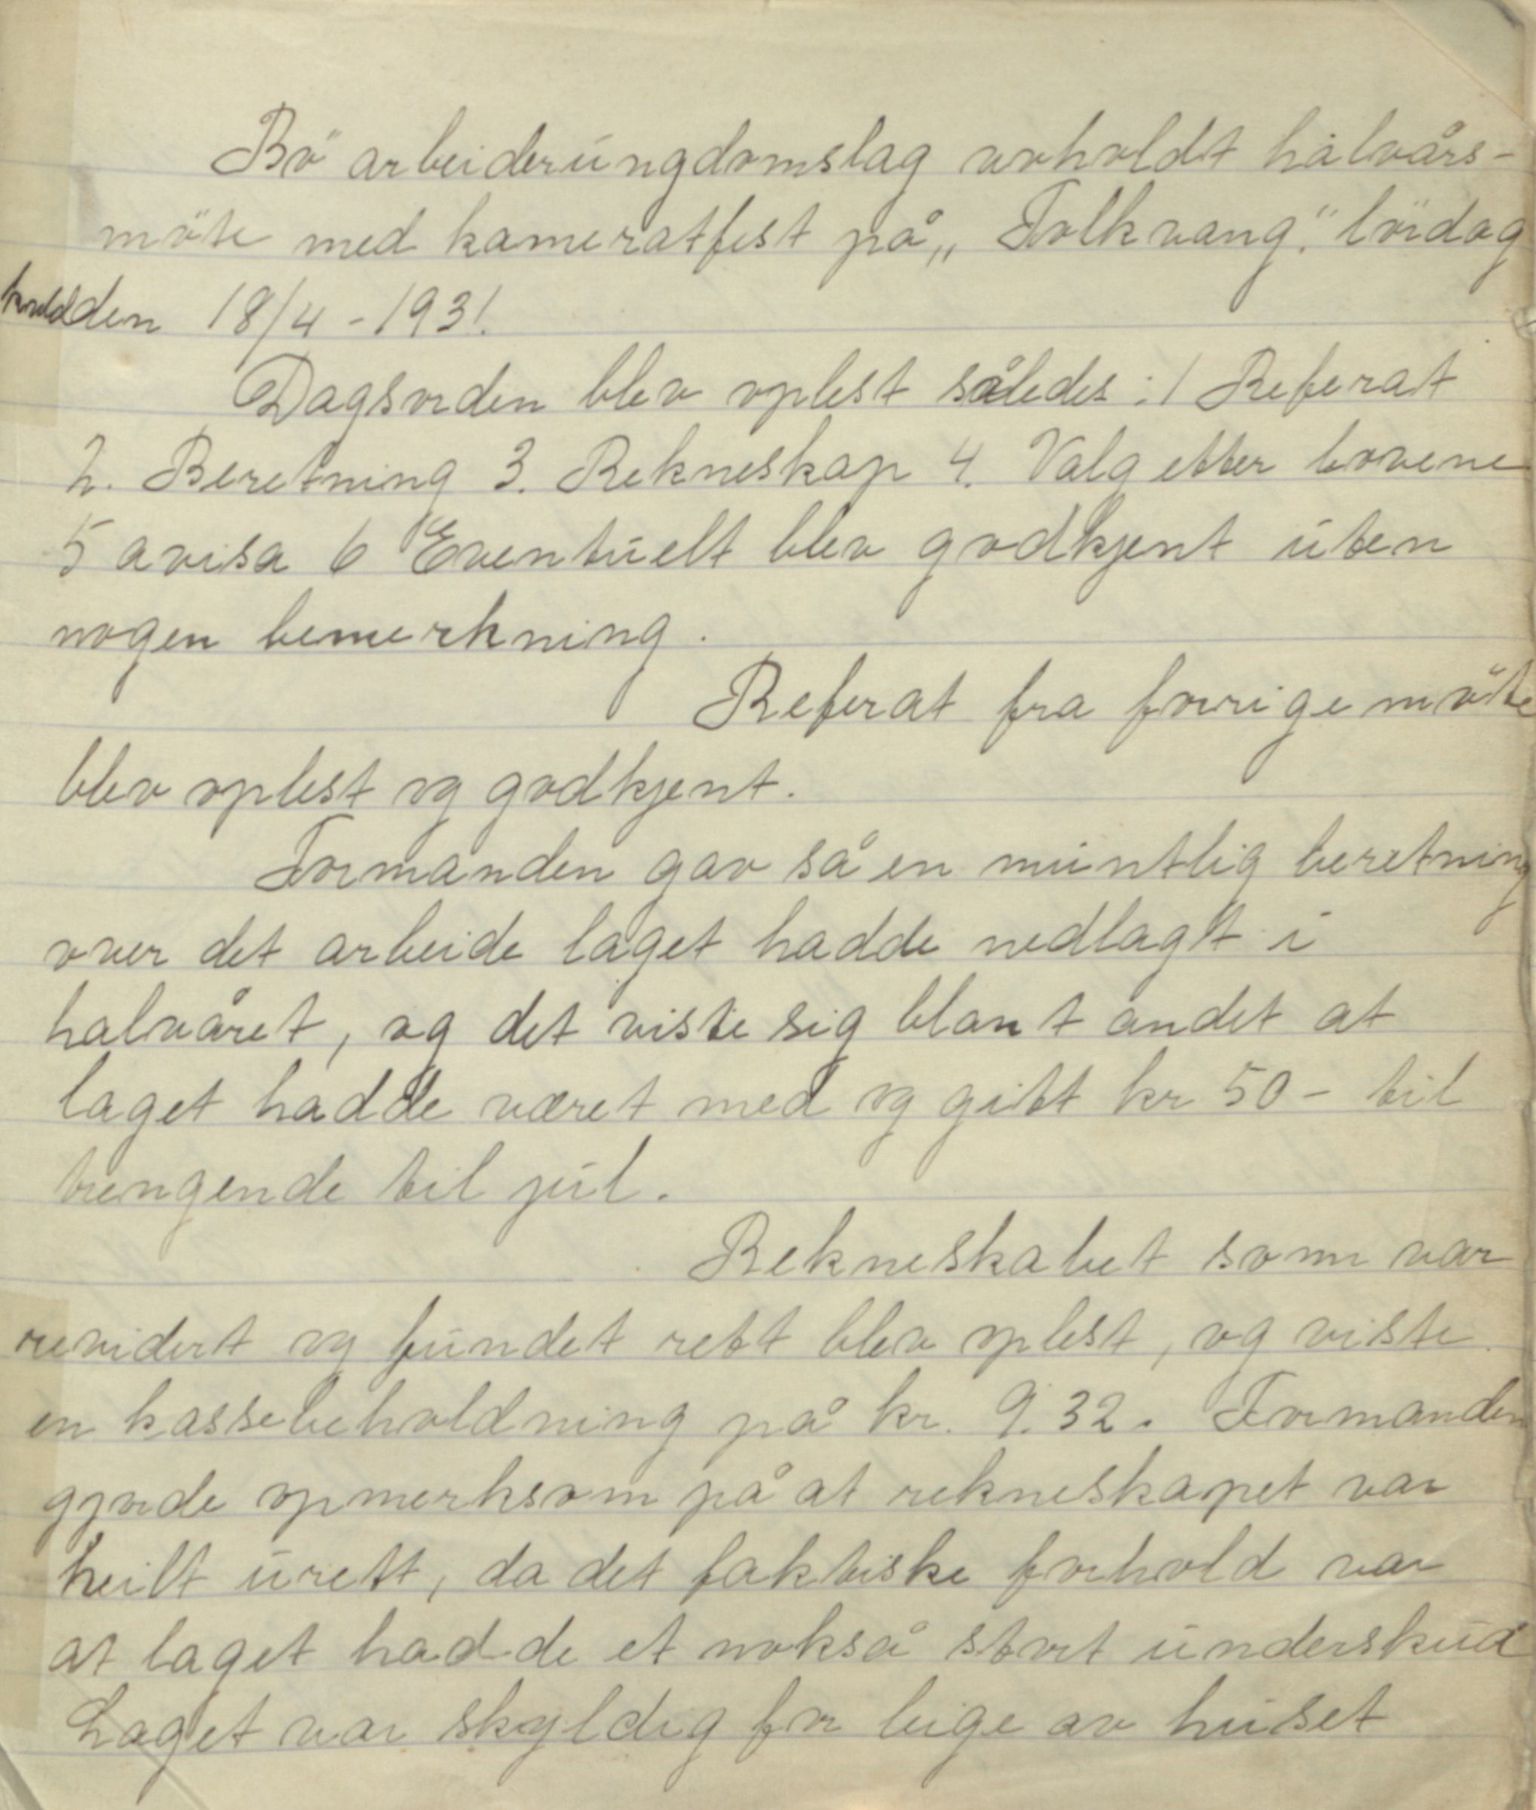 Bö arbeiderungdomslag avholdt halvårs-
möte med kameratfest på „Folkvang." lördag
kveld den 18/4 - 1931.
Dagsorden blev oplest således: 1 Referat
2. Beretning 3. Rekneskap 4. Valg etter lovene
5 avisa 6 Eventuelt blev godkjent uten
nogen bemerkning.
Referat fra forrige möte
blev oplest og godkjent.
Formanden gav så en muntlig beretning
over det arbeide laget hadde nedlagt i
halvåret, og det viste sig blant andet at
laget hadde været med og gitt kr 50 - til
trengende til jul.
Rekneskabet som var
revidert og fundet rett blev oplest, og viste
en kassebeholdning på kr. 9.32. Formanden
gjorde opmerksom på at rekneskapet var
heilt urett, da det faktiske forhold var
at laget hadde et nokså stort underskud
Laget var skyldig for leige av huset